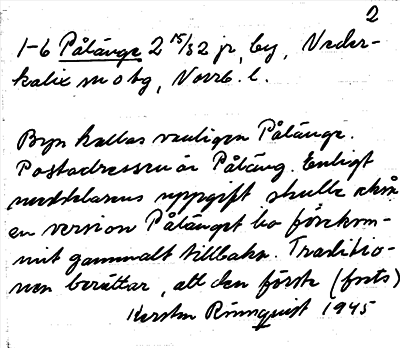 2
1-6 Pålänge 2 15/32 jr, by, Neder-
kalix sn o tg, Norrb. l.
Byn kallas vanligen Pålänge.
Postadressen är Påläng. Enligt
meddelarens uppgift skulle även
en version Pålänget ha förekom-
mit gammalt tillbaka. Traditio-
nen berättar, att den förste (forts)
Kerstin Rönnquist 1945